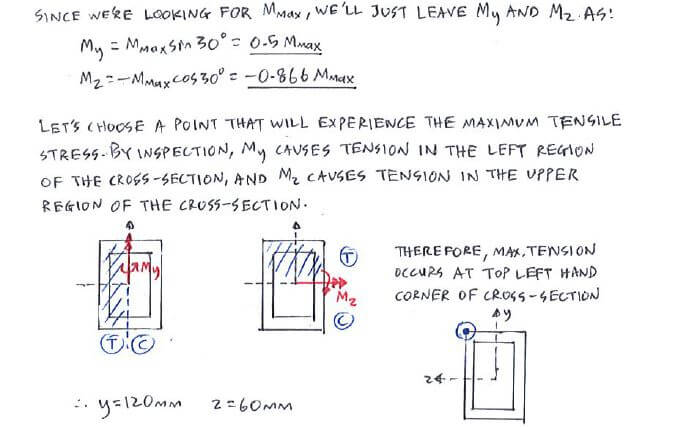 SINCE WE'RE LOOKING FOR Mmax, WE'LL JUST LEAVE My AND Mz AS:
My = Mmax sin 30° = 0.5 Mmax
Mz = -Mmax cos 30° = -0.866 Mmax
LET'S CHOOSE A POINT THAT WILL EXPERIENCE THE MAXIMUM TENSILE
STRESS. BY INSPECTION, My CAUSES TENSION IN THE LEFT REGION
OF THE CROSS-SECTION, AND Mz CAUSES TENSION IN THE UPPER
REGION OF THE CROSS-SECTION.
My
T C
T
Mz
C
THEREFORE, MAX. TENSION
OCCURS AT TOP LEFT HAND
CORNER OF CROSS-SECTION
y
z
∴ y=120mm z=60mm